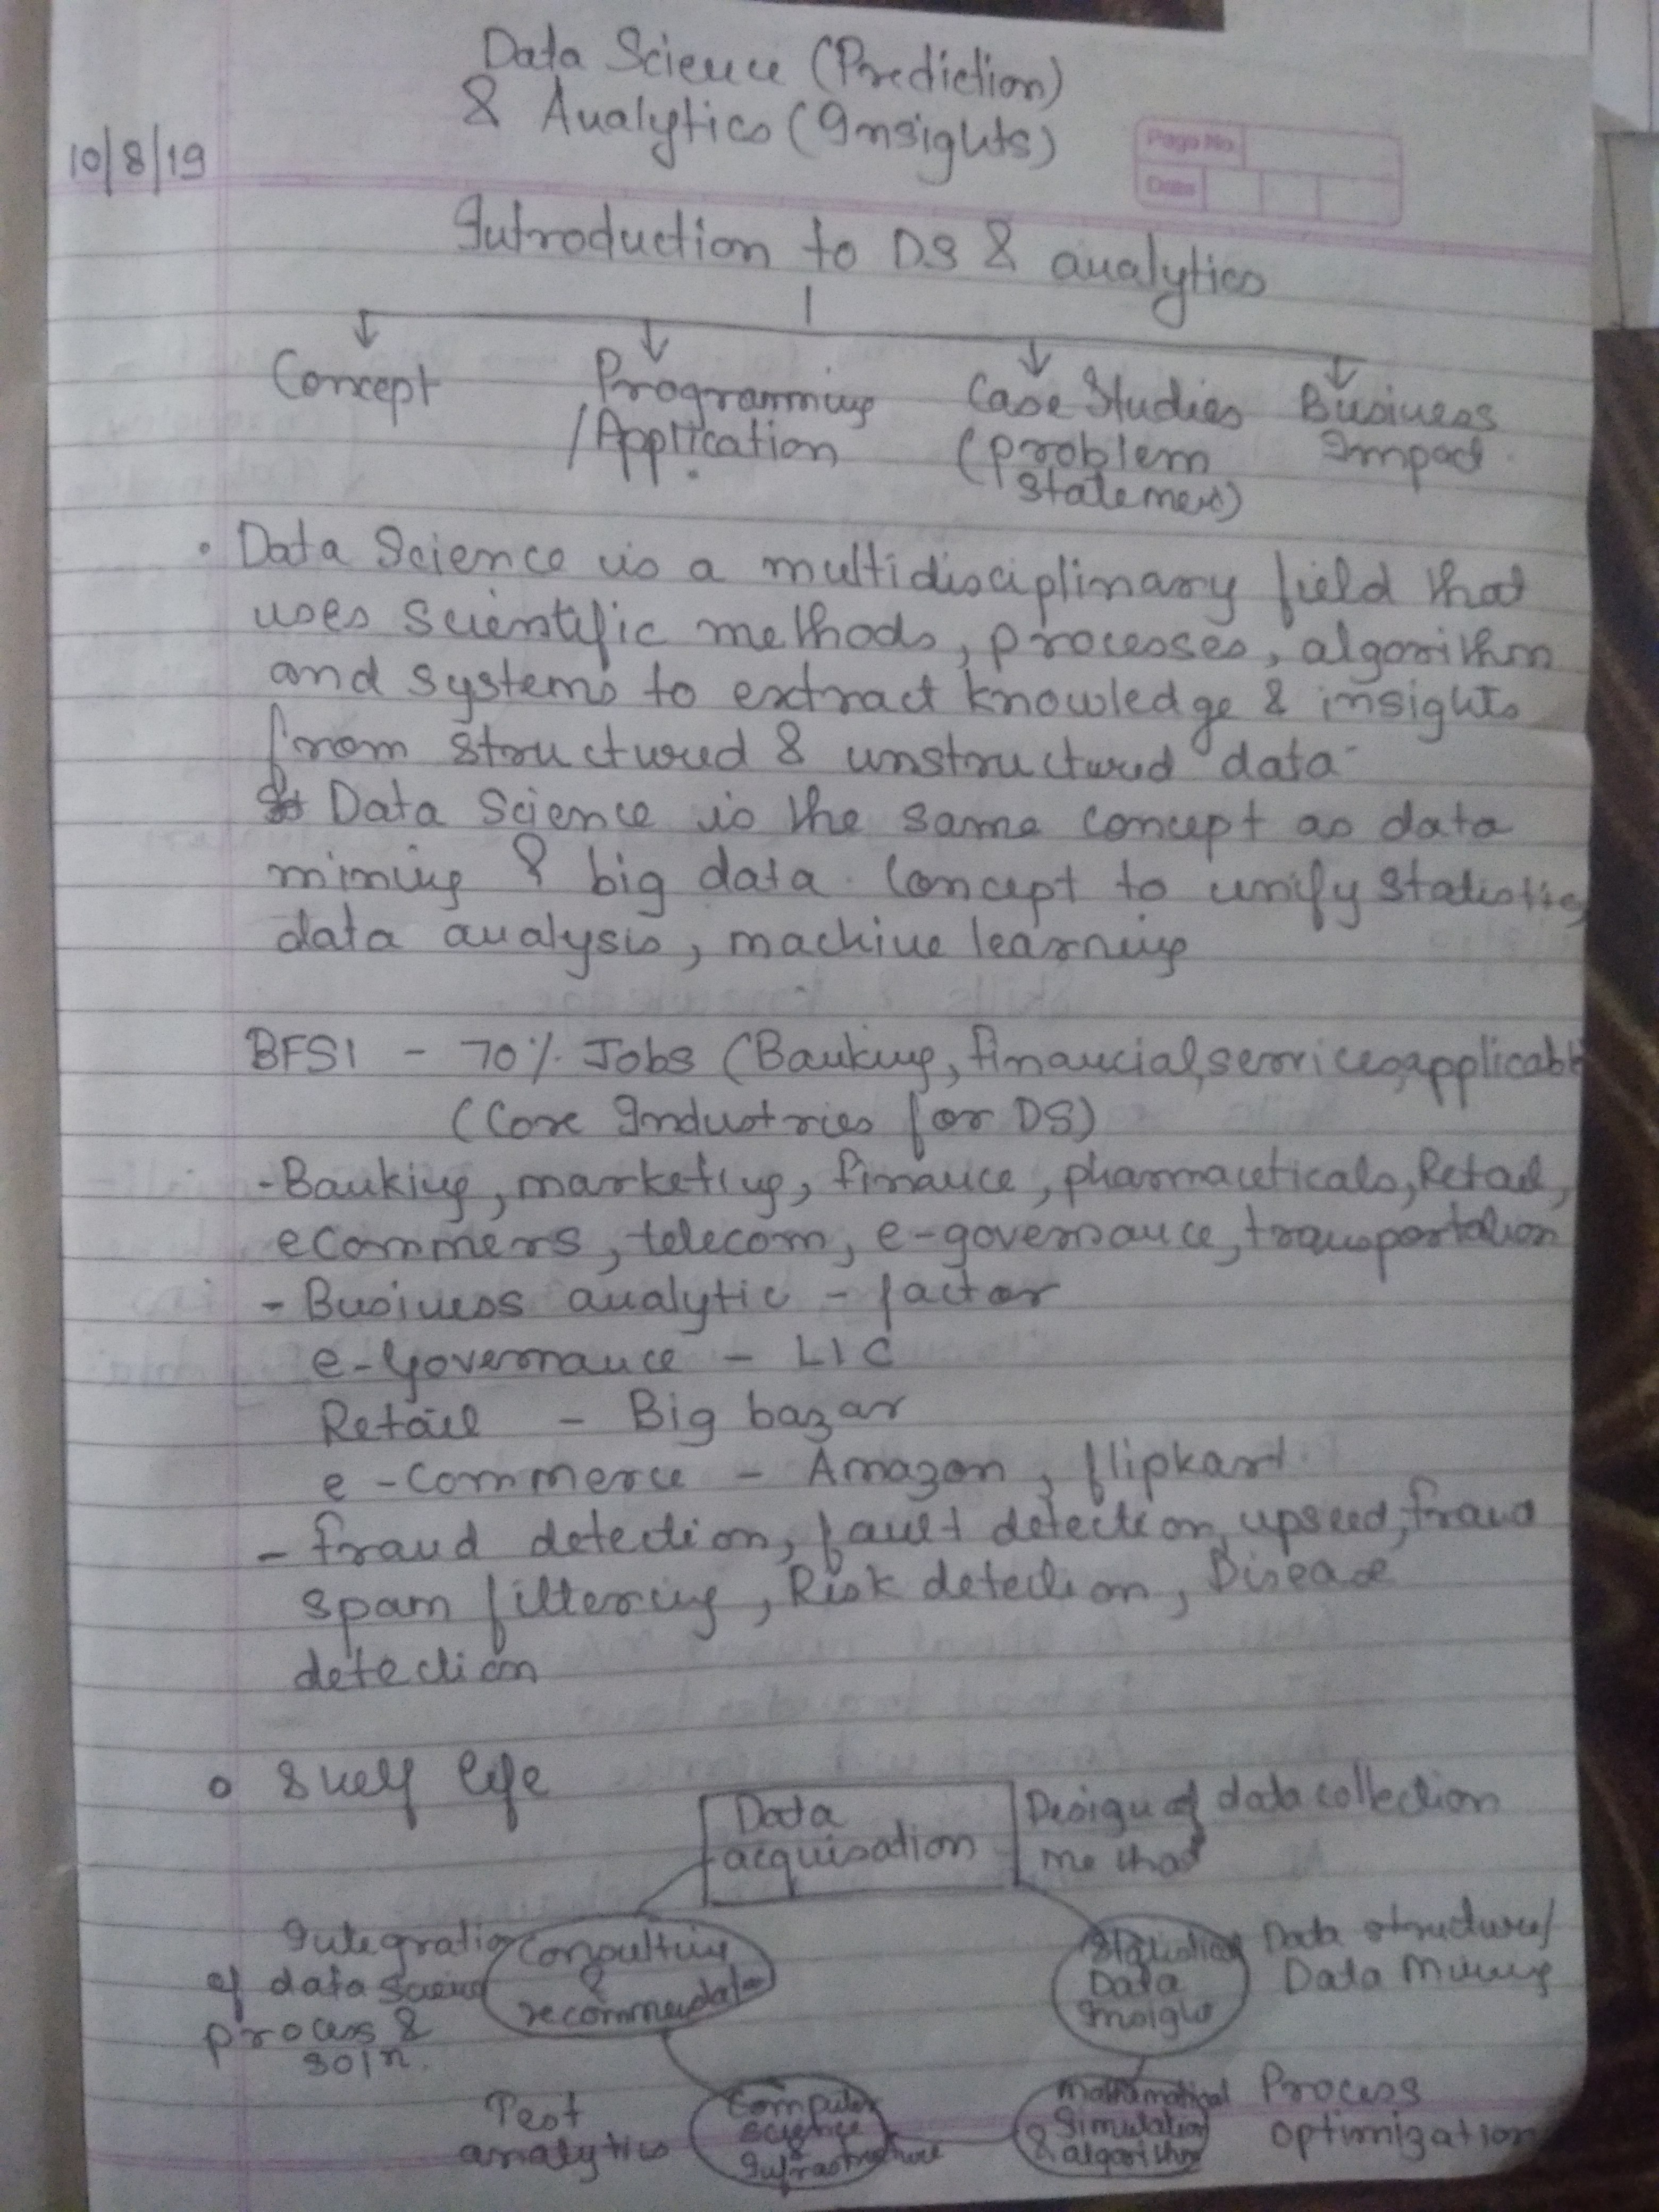 Data Science (Prediction)
& Analytics (Insights)
10/8/19
Page No.
Date
Introduction to DS & analytics
Concept
Programming
/Application
Case Studies
(problem
statement)
Business
Impact
• Data Science is a multidisciplinary field that
uses scientific methods, processes, algorithm
and systems to extract knowledge & insights
from structured & unstructured data
Data Science is the same concept as data
mining & big data. Concept to unify statistics
data analysis, machine learning
BFSI - 70% Jobs (Banking, financial, services, applicable
(Core Industries for DS)
- Banking, marketing, finance, pharmaceuticals, Retail,
eCommers, telecom, e-governance, transportation
- Business analytic - factor
e-Governance - LIC
Retail - Big bazar
e-Commerce - Amazon, flipkart.
- fraud detection, fault detection, fraud
spam filtering, Risk detection, Disease
detection
o Shelf life
Data
acquisation
Design of data collection
method
Integration
of data science
process &
soln.
Consulting
&
recommendate
Statistical
Data
Insight
Data structure/
Data Mining
Test
analytics
Computer
science
&
Infrastructure
Mathematical
Simulation
& algorithm
Process
optimization